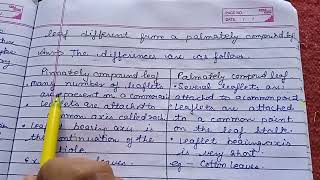 PAGE NO.
DATE: / /
leaf different from a palmately compound leaf.
Ans→ The differences are as follows.
Pinnately compound leaf
many number of leaflets
are present on a common
leaflets are attached to
common axis called
leaflet bearing axis is
the continuation of the
leaves
Palmately compound leaf
Several leaflets are
attached to a common point
leaflets are attached
to a common point
on the leaf stalk.
leaflet bearing axis
is very short.
eg - Cotton leaves.